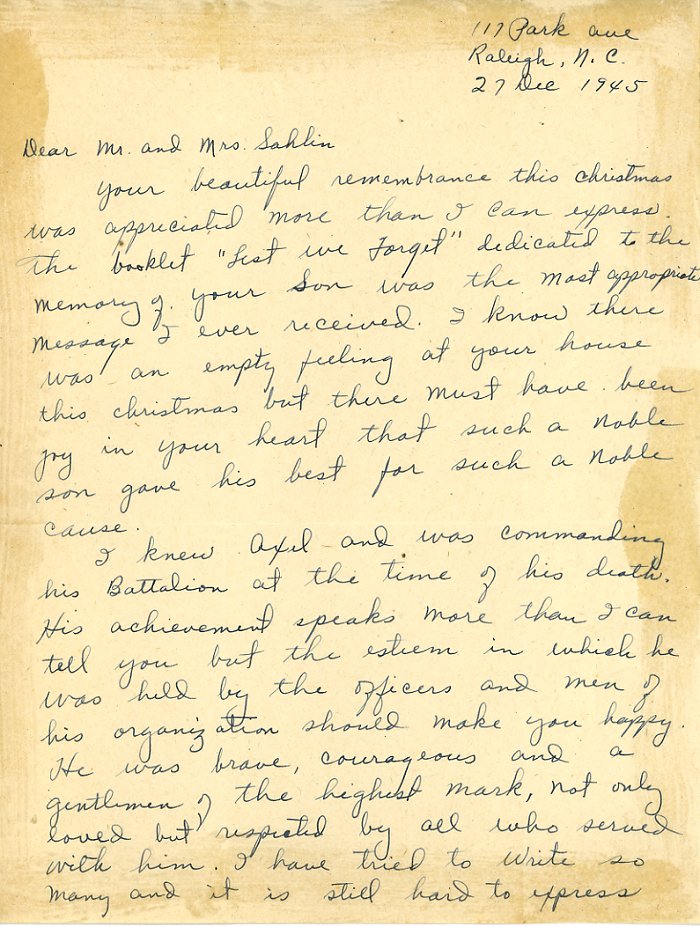 117 Park ave
Raleigh, N. C.
27 Dec 1945
Dear Mr. and Mrs. Sahlin
Your beautiful remembrance this christmas
was appreciated more than I can express.
The booklet "Lest We Forget" dedicated to the
memory of your Son was the most appropriate
message I ever received. I know there
was an empty feeling at your house
this christmas but there must have been
joy in your heart that such a noble
son gave his best for such a noble
cause.
I knew Axel and was commanding
his Battalion at the time of his death.
His achievement speaks more than I can
tell you but the esteem in which he
was held by the officers and men of
his organization should make you happy.
He was brave, courageous and a
gentlemen of the highest mark, not only
loved but respected by all who served
with him. I have tried to write so
many and it is still hard to express